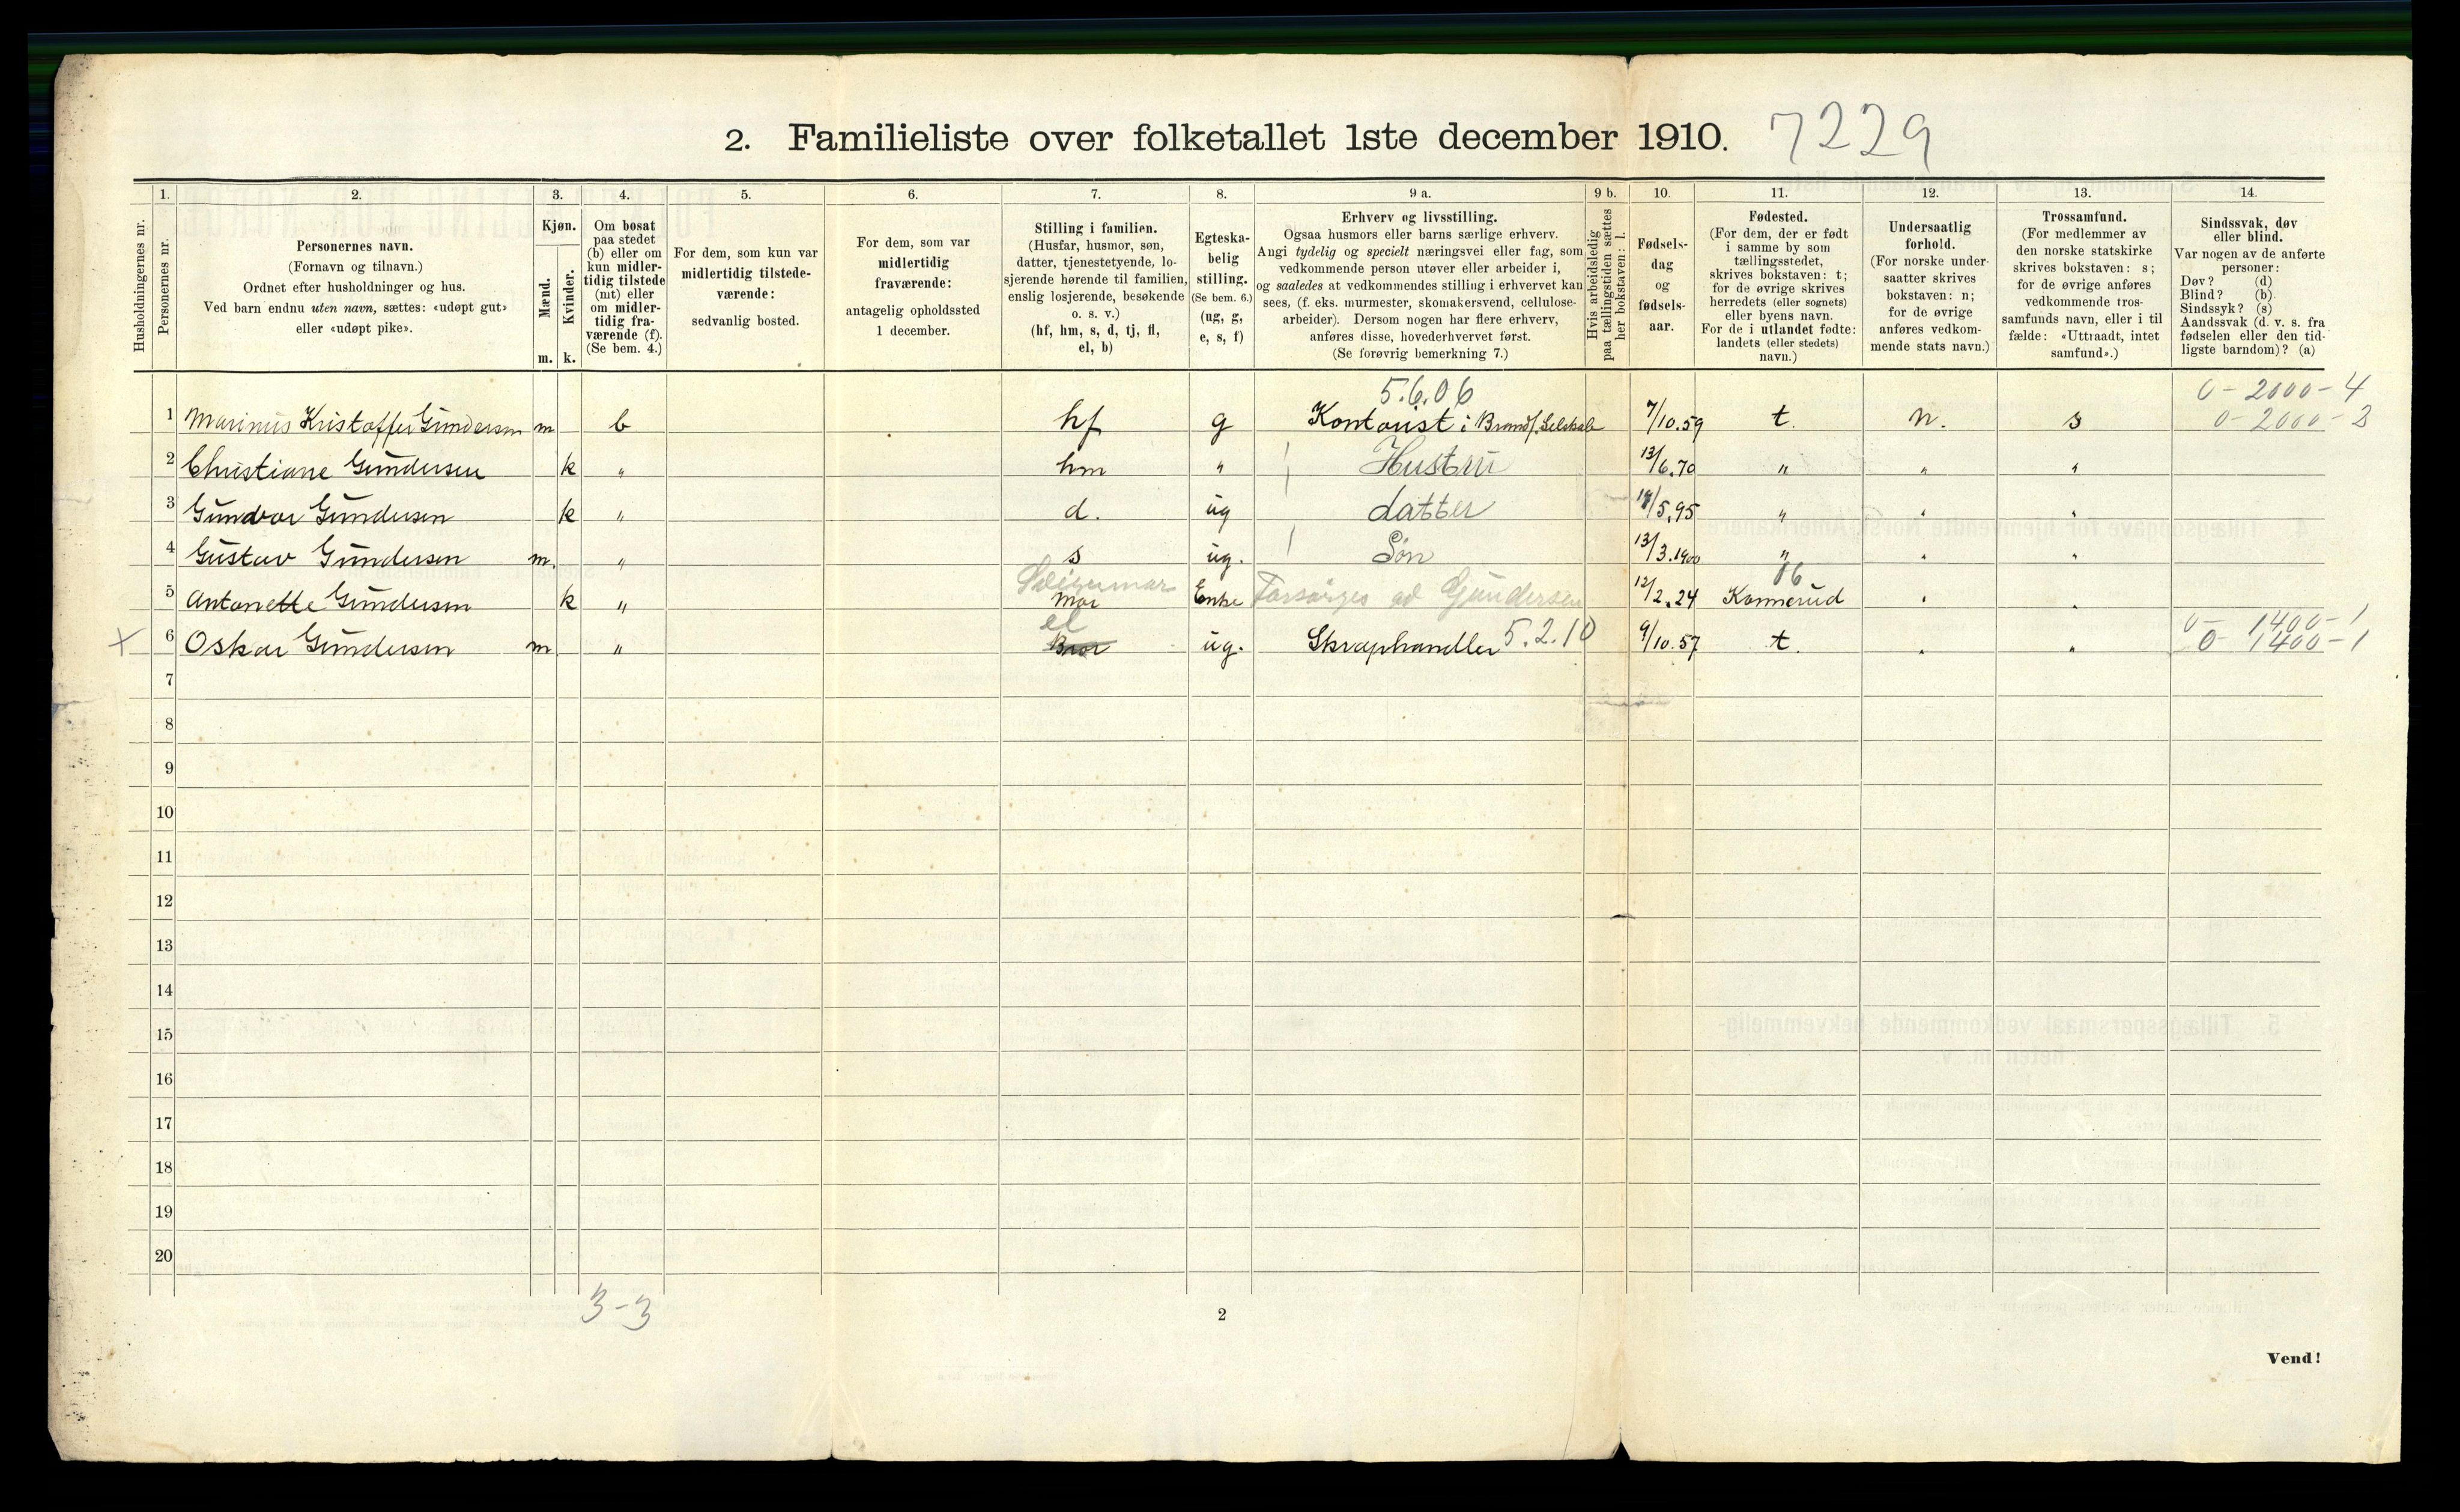 2. Familieliste over folketallet 1ste december 1910. 7229
Husholdningernes nr.
1. Personernes nr.
2. Personernes navn. (Fornavn og tilnavn.) Ordnet efter husholdninger og hus. Ved barn endnu uten navn, sættes: «udøpt gut» eller «udøpt pike».
3. Kjøn. Mænd. m. Kvinder. k.
4. Om bosat paa stedet (b) eller om kun midlertidig tilstede (mt) eller om midlertidig fraværende (f). (Se bem. 4.)
5. For dem, som kun var midlertidig tilstedeværende: sedvanlig bosted.
6. For dem, som var midlertidig fraværende: antagelig opholdssted 1 december.
7. Stilling i familien. (Husfar, husmor, søn, datter, tjenestetyende, losjerende hørende til familien, enslig losjerende, besøkende o. s. v.) (hf, hm, s, d, tj, fl, el, b)
8. Egteskabelig stilling. (Se bem. 6.) (ug, g, e, s, f)
9 a. Erhverv og livsstilling. Ogsaa husmors eller barns særlige erhverv. Angi tydelig og specielt næringsvei eller fag, som vedkommende person utøver eller arbeider i, og saaledes at vedkommendes stilling i erhvervet kan sees, (f. eks. murmester, skomakersvend, cellulosearbeider). Dersom nogen har flere erhverv, anføres disse, hovederhvervet først. (Se forøvrig bemerkning 7.)
9 b. Hvis arbeidsledig paa tællingstiden sættes her bokstaven: l.
10. Fødselsdag og fødselsaar.
11. Fødested. (For dem, der er født i samme by som tællingsstedet, skrives bokstaven: t; for de øvrige skrives herredets (eller sognets) eller byens navn. For de i utlandet fødte: landets (eller stedets) navn.)
12. Undersaatlig forhold. (For norske undersaatter skrives bokstaven: n; for de øvrige anføres vedkommende stats navn.)
13. Trossamfund. (For medlemmer av den norske statskirke skrives bokstaven: s; for de øvrige anføres vedkommende trossamfunds navn, eller i tilfælde: «Uttraadt, intet samfund».)
14. Sindssvak, døv eller blind. Var nogen av de anførte personer: Døv? (d) Blind? (b) Sindssyk? (s) Aandssvak (d. v. s. fra fødselen eller den tidligste barndom)? (a)
5.6.06 0-2000-4
1 Marinus Kristoffer Gundersen m b hf g Kontorist i Brandf. Selskab 7/10.59 t. n. s 0-2000-3
2 Christiane Gundersen k " hm " Hustru 13/6.70 " " "
3 Gundvor Gundersen k " d. ug datter 19/5.95 " " "
4 Gustav Gundersen m. " s ug. Søn 13/3.1900 " " "
06
5 Antonette Gundersen k " Mor Enke Forsørges av Gundersen 12/2.24 Konnerud " "
el 0-1400-1
6 Oskar Gundersen m " Bror ug. Skraphandler 5.2.10 9/10.57 t. " " 0-1400-1
7
8
9
10
11
12
13
14
15
16
17
18
19
20
3-3
2
Vend!